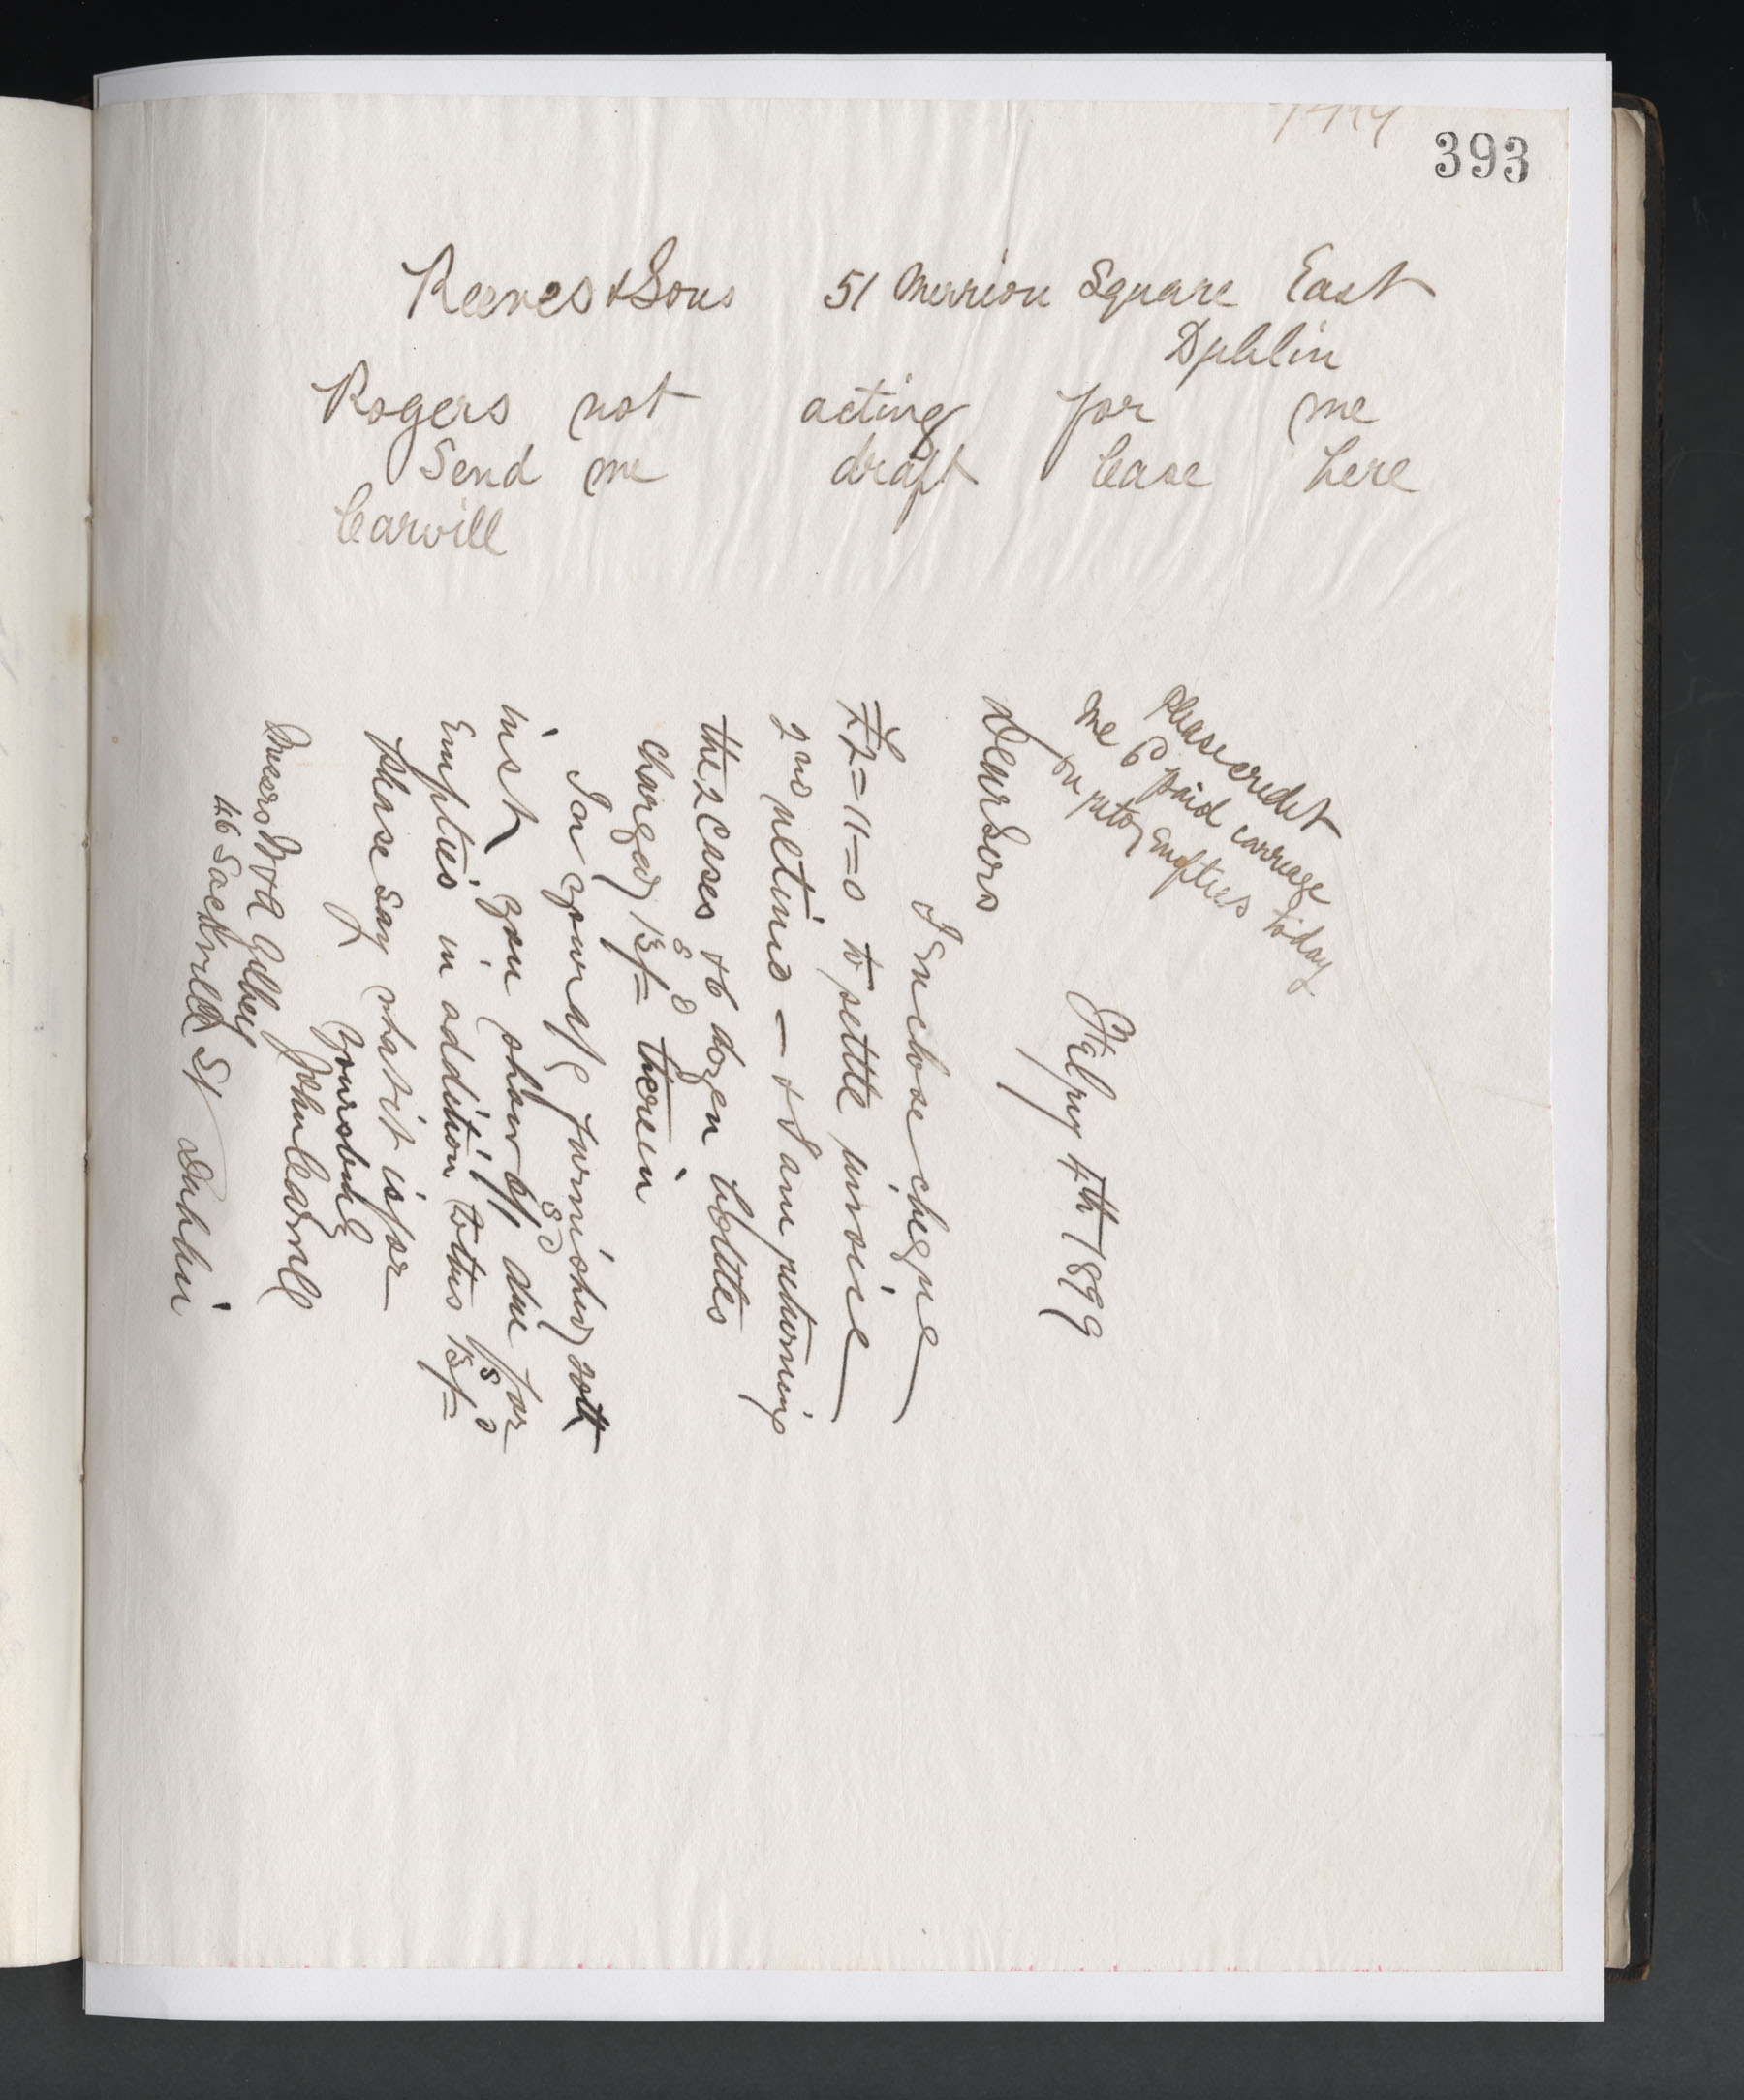 393
Reeves & Sons 51 Merrion Square East
Dublin
Rogers not acting for me
Send me draft lease here
Carvill
Please credit
me 6d paid carriage
on retd Empties today
Feby 4th 1899
Dear Sirs
I Enclose cheque
£2=11=0 to settle invoice
2nd ultimo — & I am returning
the 2 cases & 6 dozen bottles
charged 13/= therein
s d
In your a/c furnished
inst you show s d due for
Empties in addition to this 13/=
s d
please say what it is for
Yours truly
John Carvill
Messrs W & A Gilbey
46 Sackville St Dublin